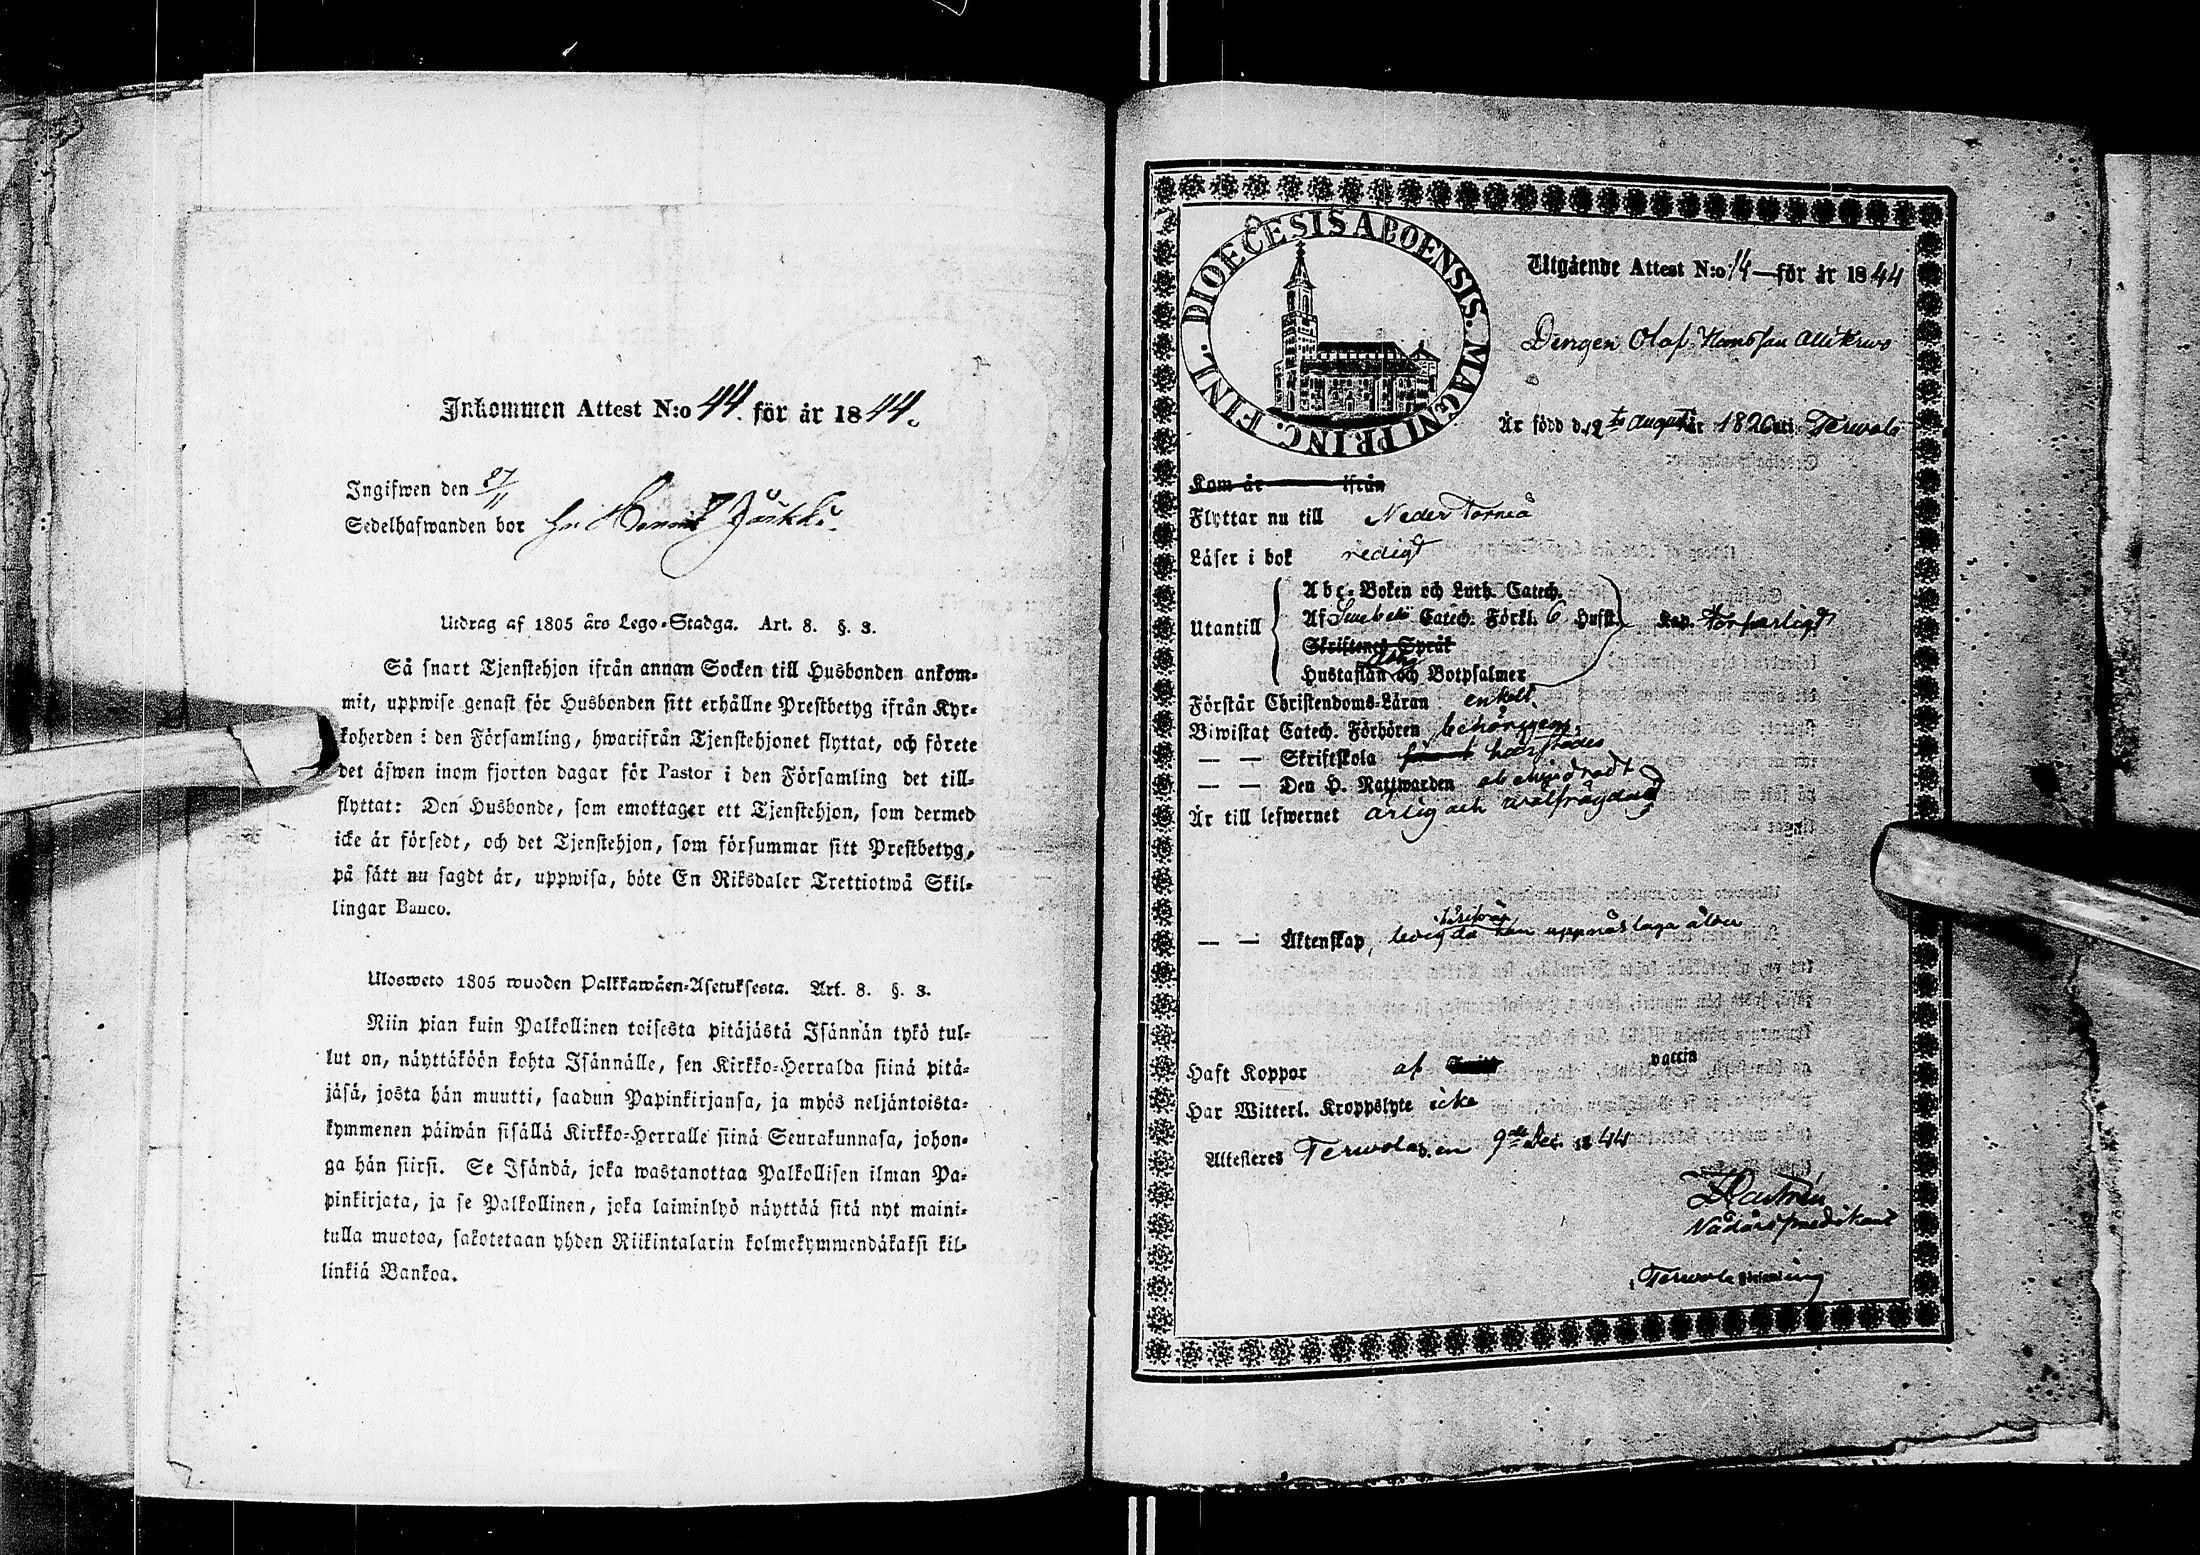 Inkommen Attest N:o 44. för år 1844.
Ingifwen den 27/11
Sedelhafwanden bor hu Henrik Jäskki.
Utdrag af 1805 års Lego-Stadga. Art. 8. §. 3.
Så snart Tjenstehjon ifrån annan Socken till Husbonden ankom-
mit, uppwise genast för Husbonden sitt erhållne Prestbetyg ifrån Kyr-
koherden i den Församling, hwarifrån Tjenstehjonet flyttat, och förete
det äfwen inom fjorton dagar för Pastor i den Församling det till-
flyttat: Den Husbonde, som emottager ett Tjenstehjon, som dermed
icke är försedt, och det Tjenstehjon, som försummar sitt Prestbetyg,
på sätt nu sagdt är, uppwisa, böte En Riksdaler Trettiotwå Skil-
lingar Banco.
Ulosweto 1805 wuoden Palkkawäen-Asetuksesta. Art. 8. §. 3.
Niin pian kuin Palkollinen toisesta pitäjästä Isännän tykö tul-
lut on, näyttäköön kohta Isännälle, sen Kirkko-Herralda siinä pitä-
jäsä, josta hän muutti, saadun Papinkirjansa, ja myös neljäntoista-
kymmenen päiwän sisällä Kirkko-Herralle siinä Seurakunnasa, johon-
ga hän siirsi. Se Isändä, joka wastanottaa Palkollisen ilman Pa-
pinkirjata, ja se Palkollinen, joka laiminlyö näyttää sitä nyt maini-
tulla muotoa, sakotetaan yhden Riikintalarin kolmekymmendäkaksi kil-
linkiä Bankoa.
DIOECESIS ABOENSIS. MAGNI PRINC. FINL.
Utgående Attest N:o 14 för år 1844
Drngen Olof Hansson
Är född d. 2te Augusti år 1826 uti Terwola
Kom år ifrån
Flyttar nu till Neder Torneå
Läser i bok redigt
Utantill
Abc-Boken och Luth. Catech.
Af Swebelii Catech. Förkl. 6 Hufst. Kap. försvarligt
Skriftenes Språk
Hustaflan och Botpsalmer
Förstår Christendoms-Läran enkelt
Biwistat Catech. Förhören behörigen
— — Skriftskola härstädes
— — Den H. Nattwarden obehindradt
Är till lefwernet ärlig och wälfrägdad
— — Äktenskap, ledig då han uppnås laga ålder
Haft Koppor af vaccin
Har Witterl. Kroppslyte icke
Attesteras Terwola d. en 9de Dec. 1844
Castrén
Nådårspredikant
Terwola Församling